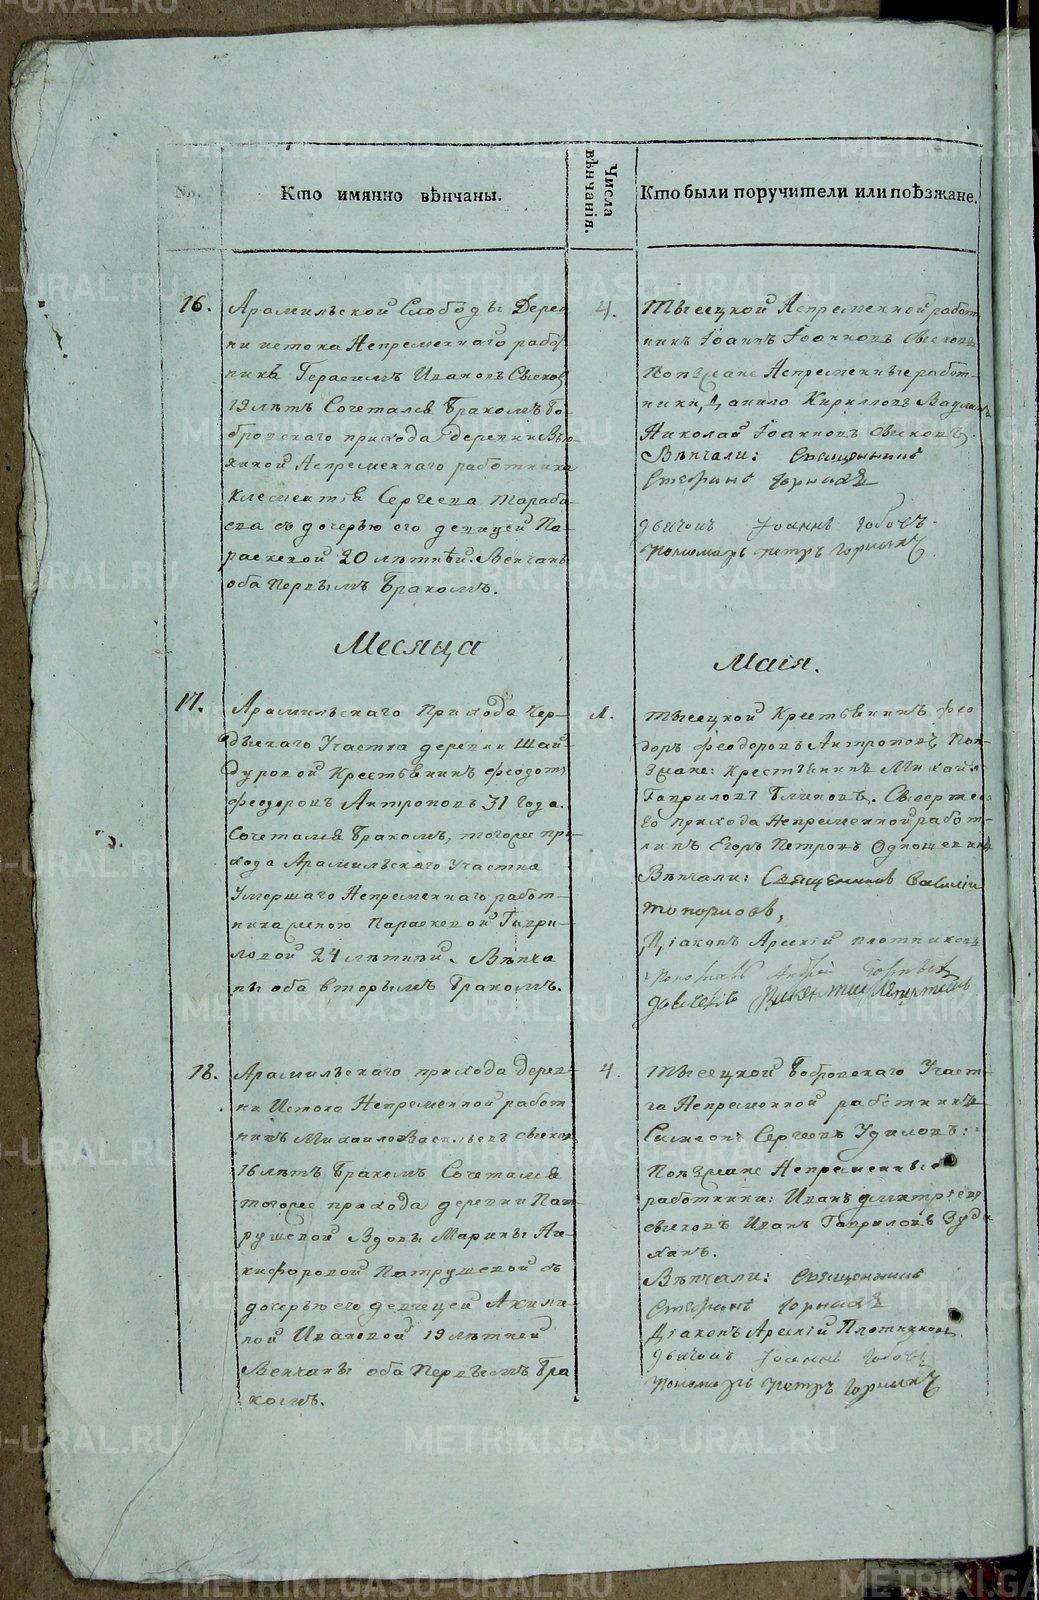 №.
Кто имянно вѣнчаны.
Числа вѣнчанія.
Кто были поручители или поѣзжане.
16.
Арамильской Слободы Дерев
ни истока Непременнаго рабо
ника Герасимъ Ивановъ
19 лѣтъ Сочетался Бракомъ Бо-
бровскаго прихода деревни Вью
хиной Непременнаго работника
Климентія Сергеева Тараба-
ева съ дочерью его девицей Па-
раскевой 20 лѣтней. Венчаны
оба Первымъ Бракомъ.
4.
Тысецкой Непременной работ
никъ Іоаннъ Іоанновъ
Поезжане Непременные работ-
ники, Данило Кирилловъ
Николай Іоанновъ
Вѣнчали: Священникъ
Стефанъ
Дьячокъ Іоаннъ
Пономарь Петръ Горныхъ
Месяца
Маія.
17.
Арамильскаго Прихода Чер-
дынскаго Участка деревни Шай-
дуровой Крестьянинъ Феодотъ
Феодоровъ Антроповъ 31 Года.
Сочетался Бракомъ, тогоже при
хода Арамильскаго Участка
Умершаго Непременнаго работ-
ника женою Параскевой Гаври-
ловой 24 лѣтней. Вѣнча
ны оба вторымъ Бракомъ.
1.
Тысецкой Крестьянинъ Фео
доръ Феодоровъ Антроповъ, Поѣ-
зжане: Крестьянинъ Михайло
Гавриловъ Блиновъ.
го прихода Непременной работ-
никъ Егоръ Петровъ
Вѣнчали: Священникъ Василій
Топорковъ,
Діаконъ Арсеній Плотниковъ
Пономарь Андрей
18.
Арамильскаго прихода дерев-
ни Истока Непременной работ
никъ Михайло Васильевъ
16 лѣтъ Бракомъ Сочетался
тогоже прихода деревни Пат
рушевой Вдовы Марины Ни-
кифоровой Патрушевой съ
дочерью его девицей Акили-
ной Ивановой 19 лѣтней
Венчаны оба Первымъ Бра
комъ.
4.
Тысецкой Бобровскаго Участ-
ка Непременной работникъ
Симеонъ Сергеевъ Удиловъ:
Поѣзжане Непременные
работники: Иванъ Дмитріевъ
Иванъ Гавриловъ
Вѣнчали: Священникъ
Стефанъ
Діаконъ Арсеній Плотниковъ
Дьячокъ Іоаннъ
Пономарь Петръ Горныхъ
METRIKI.GASO-URAL.RU